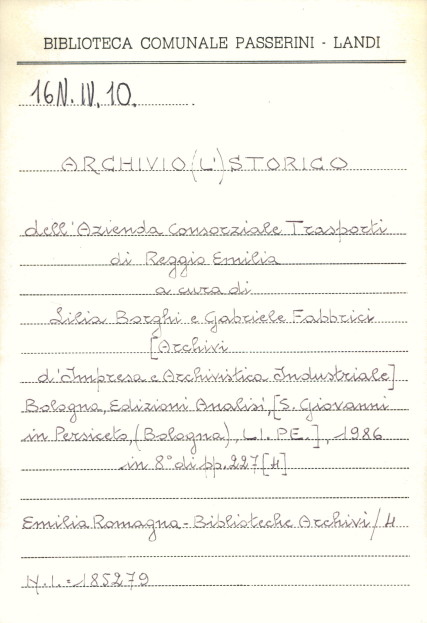 BIBLIOTECA COMUNALE PASSERINI - LANDI
16N.IV.10.
ARCHIVIO (L') STORICO
dell'Azienda Consorziale Trasporti
di Reggio Emilia
a cura di
Lilia Borghi e Gabriele Fabbrici
[Archivi
d'Impresa e Archivistica Industriale]
Bologna, Edizioni Analisi, [S. Giovanni
in Persiceto, (Bologna), L.I.PE.], 1986
in 8° di pp. 227 [4]
Emilia Romagna - Biblioteche Archivi / 4
N.I. = 185279